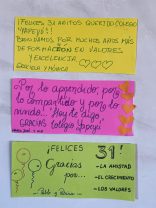 ¡FELICES 31 AÑITOS QUERIDO COLEGIO
"YAPEYÚ"!
BRINDAMOS POR MUCHOS AÑOS MÁS
DE FORMACIÓN EN VALORES
Y EXCELENCIA.
GRACIELA Y MÓNICA
Por lo aprendido, por lo
compartido y por lo
vivido! Hoy te digo
GRACIAS Colegio Yapeyú
¡FELICES 31!
Gracias
por...
- LA AMISTAD
- EL CRECIMIENTO
- LOS VALORES